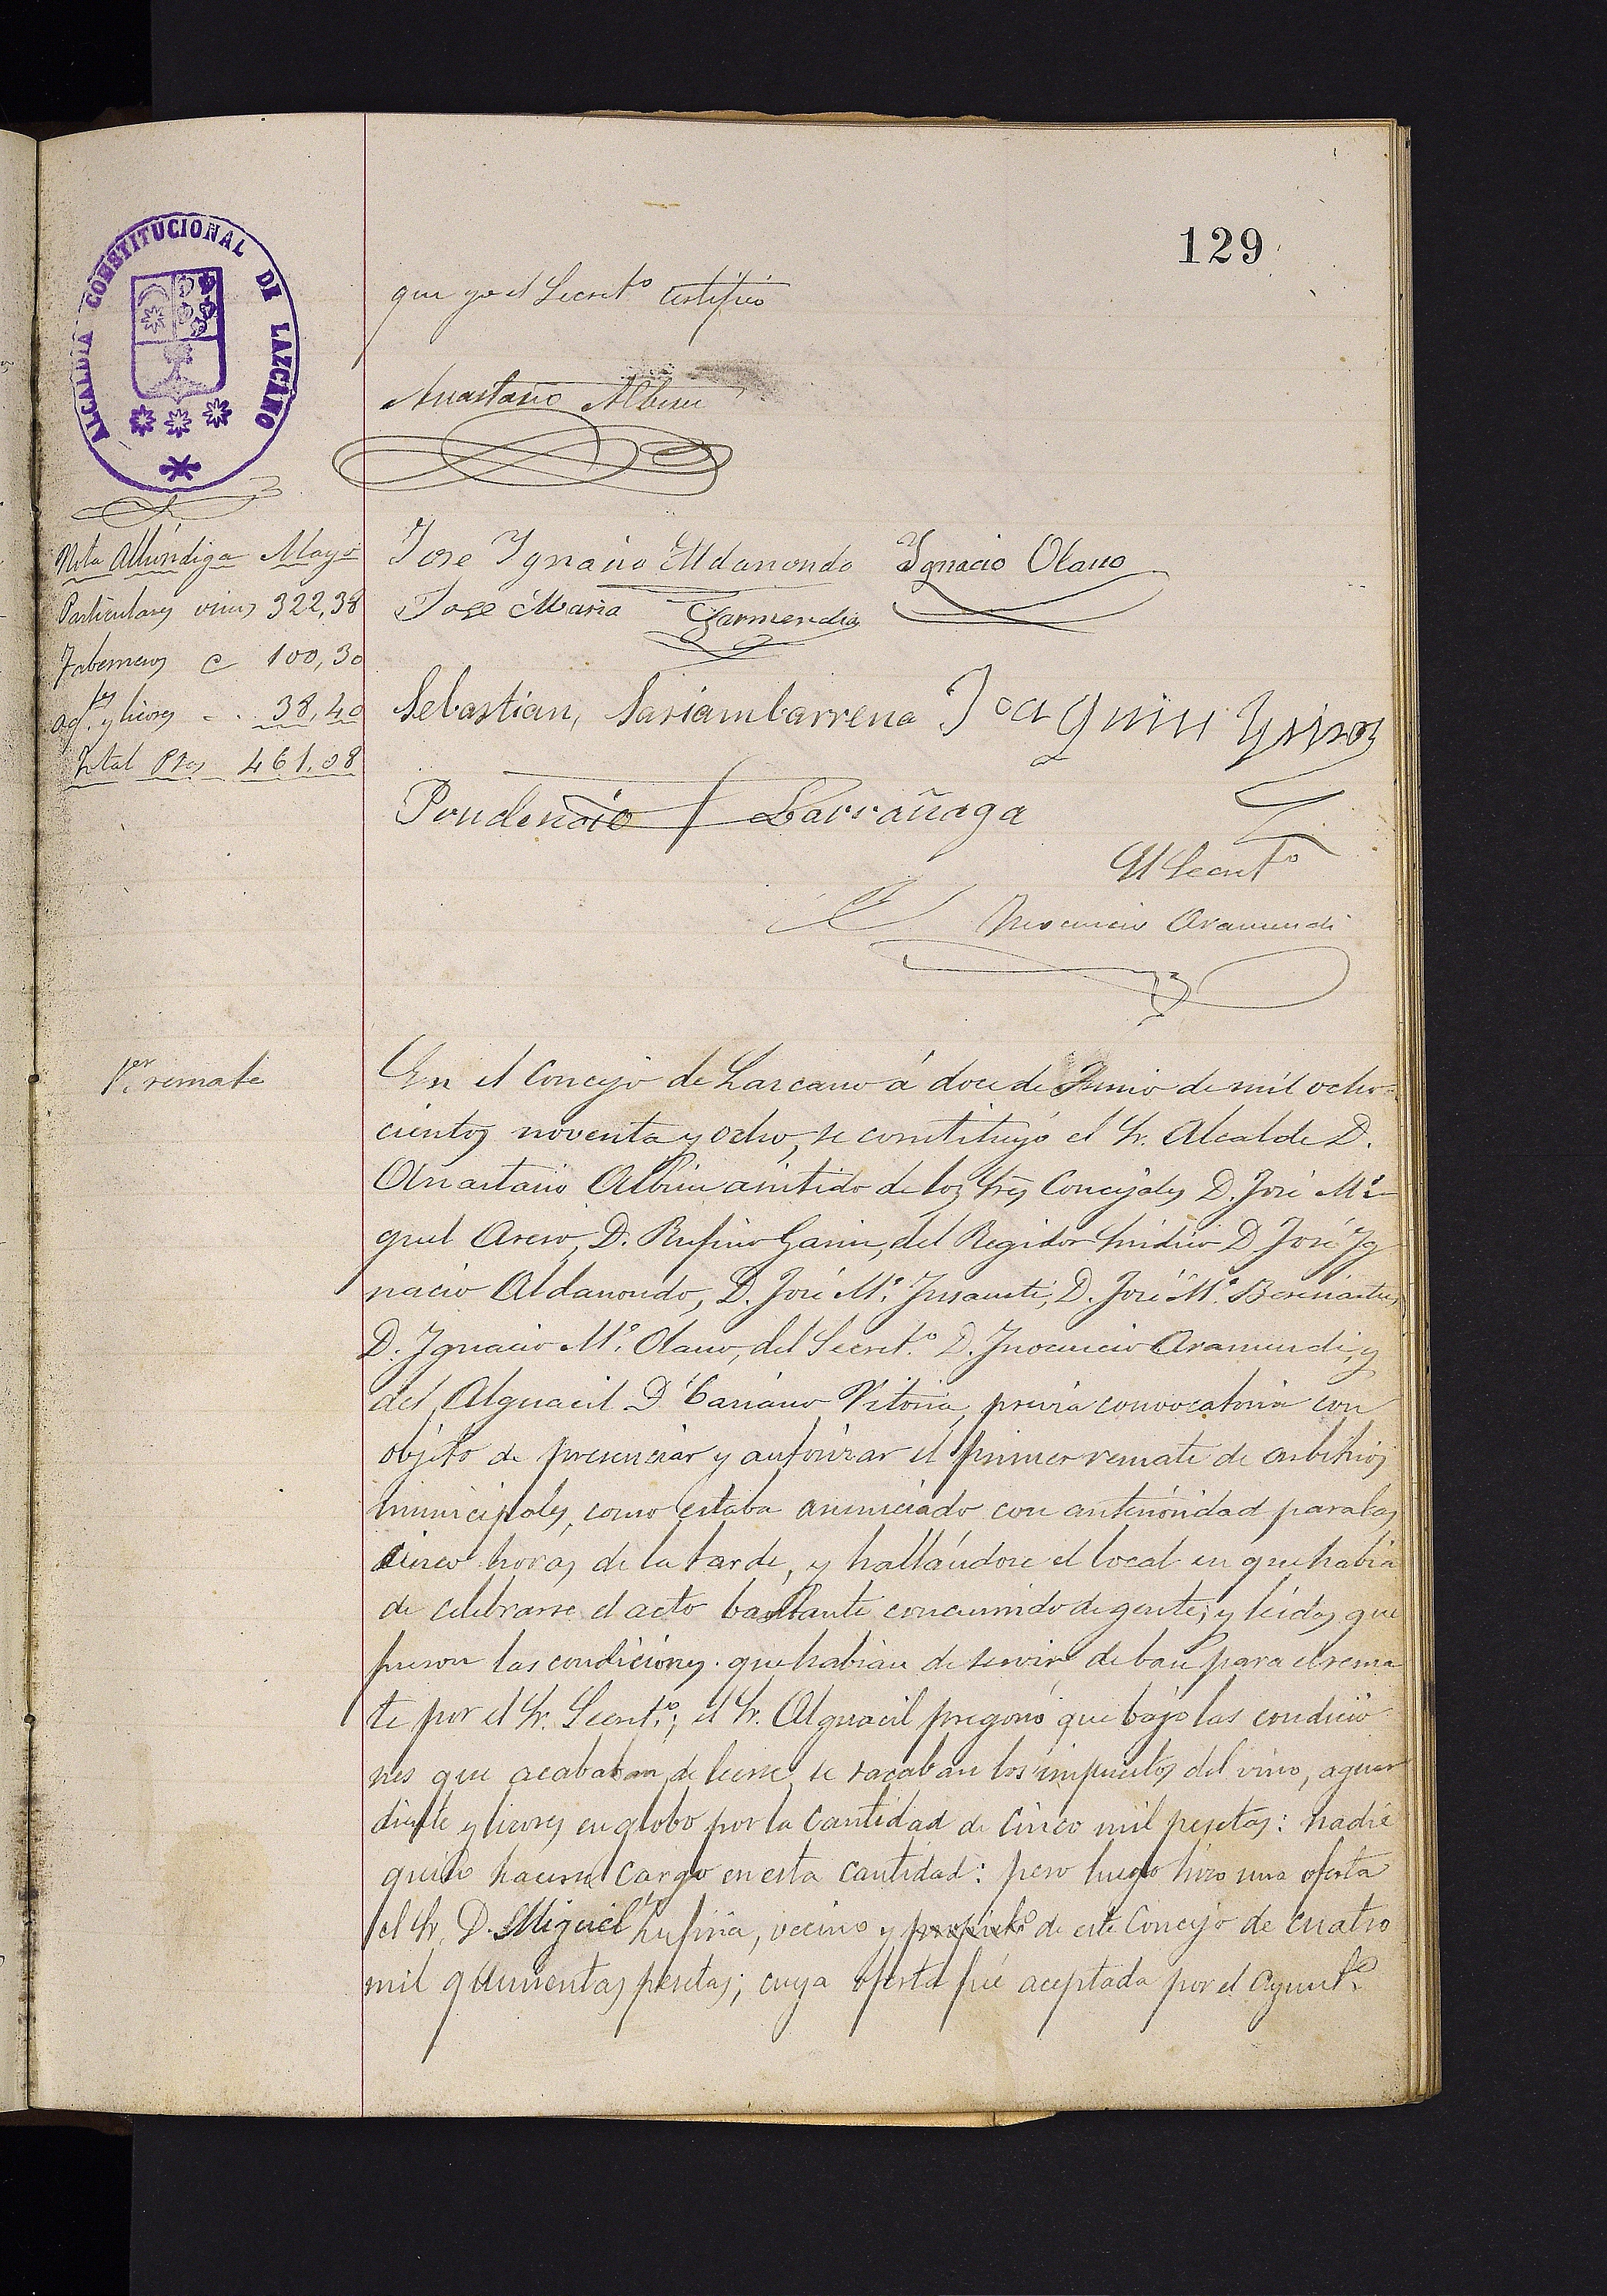 129
ALCALDÍA CONSTITUCIONAL DE LAZCANO
que yo el Secret.º certifico
Anastasio Albisu
Nota Alhóndiga Mayo
Particulares vinos 322,38
Taberneros 100,30
Ag.tes y licores 38,40
Total Ptas 461.08
Jose Ygnacio Aldanondo Ygnacio Olano
Jose Maria Garmendia
Sebastian, Sariambarrena Joaquin
Prudencio Larrañaga
El Secret.º
Inocencio Aramendi
1.er remate
En el Concejo de Lazcano á doce de Junio de mil ocho-
cientos noventa y ocho, se constituyó el Sr. Alcalde D.
Anastasio Albisu asistido de los Sres Concejales D. José Mi-
guel D. Rufino Garin, del Regidor Síndico D José Ig
nacio Aldanondo, D. José M.ª Insausti, D. José M.ª
D. Ignacio M.ª Olano, del Secret.º D. Inocencio Aramendi, y
del Alguacil D Vitoria, previa convocatoria con
objeto de presenciar y autorizar el primer remate de arbitrios
municipales, como estaba anunciado con anterioridad para las
cinco horas de la tarde, y hallándose el local en que habia
de celebrarse el acto bastante concurrido de gente; y leidas que
fueron las condiciones que habian de servir de base para el rema
te por el Sr. Secret.º; el Sr. Alguacil pregonó que bajo las condicio
nes que acababan de leerse se sacaban los impuestos del vino, aguar
diente y licores en globo por la cantidad de cinco mil pesetas: nadie
quiso hacerse cargo en esta cantidad: pero luego hizo una oferta
el Sr. D. Miguel vecino y propiet.º de este Concejo de cuatro
mil quinientas pesetas; cuya oferta fué aceptada por el Ayunt.º